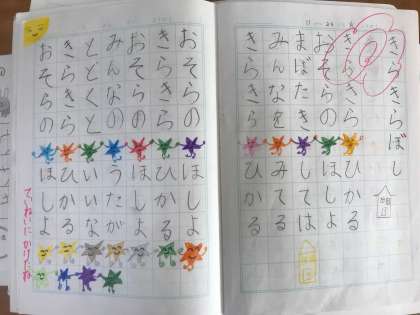 きらきらぼし
きらきら ひかる
おそらの ほしよ
まばたき しては
みんなを みてる
きらきら ひかる
おそらの ほしよ
きらきら ひかる
おそらの ほしよ
みんなの うたが
とどくと いいな
きらきら ひかる
おそらの ほしよ
ていねいにかけたね